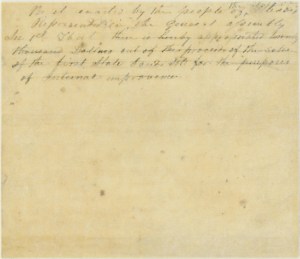 Be it enacted by the people of the State of Illinois
Represented in the General Assembly
Sec 1st That there is hereby appropriated
thousand Dollars out of the proceeds of the sales
of the State for the purposes
of internal improvement